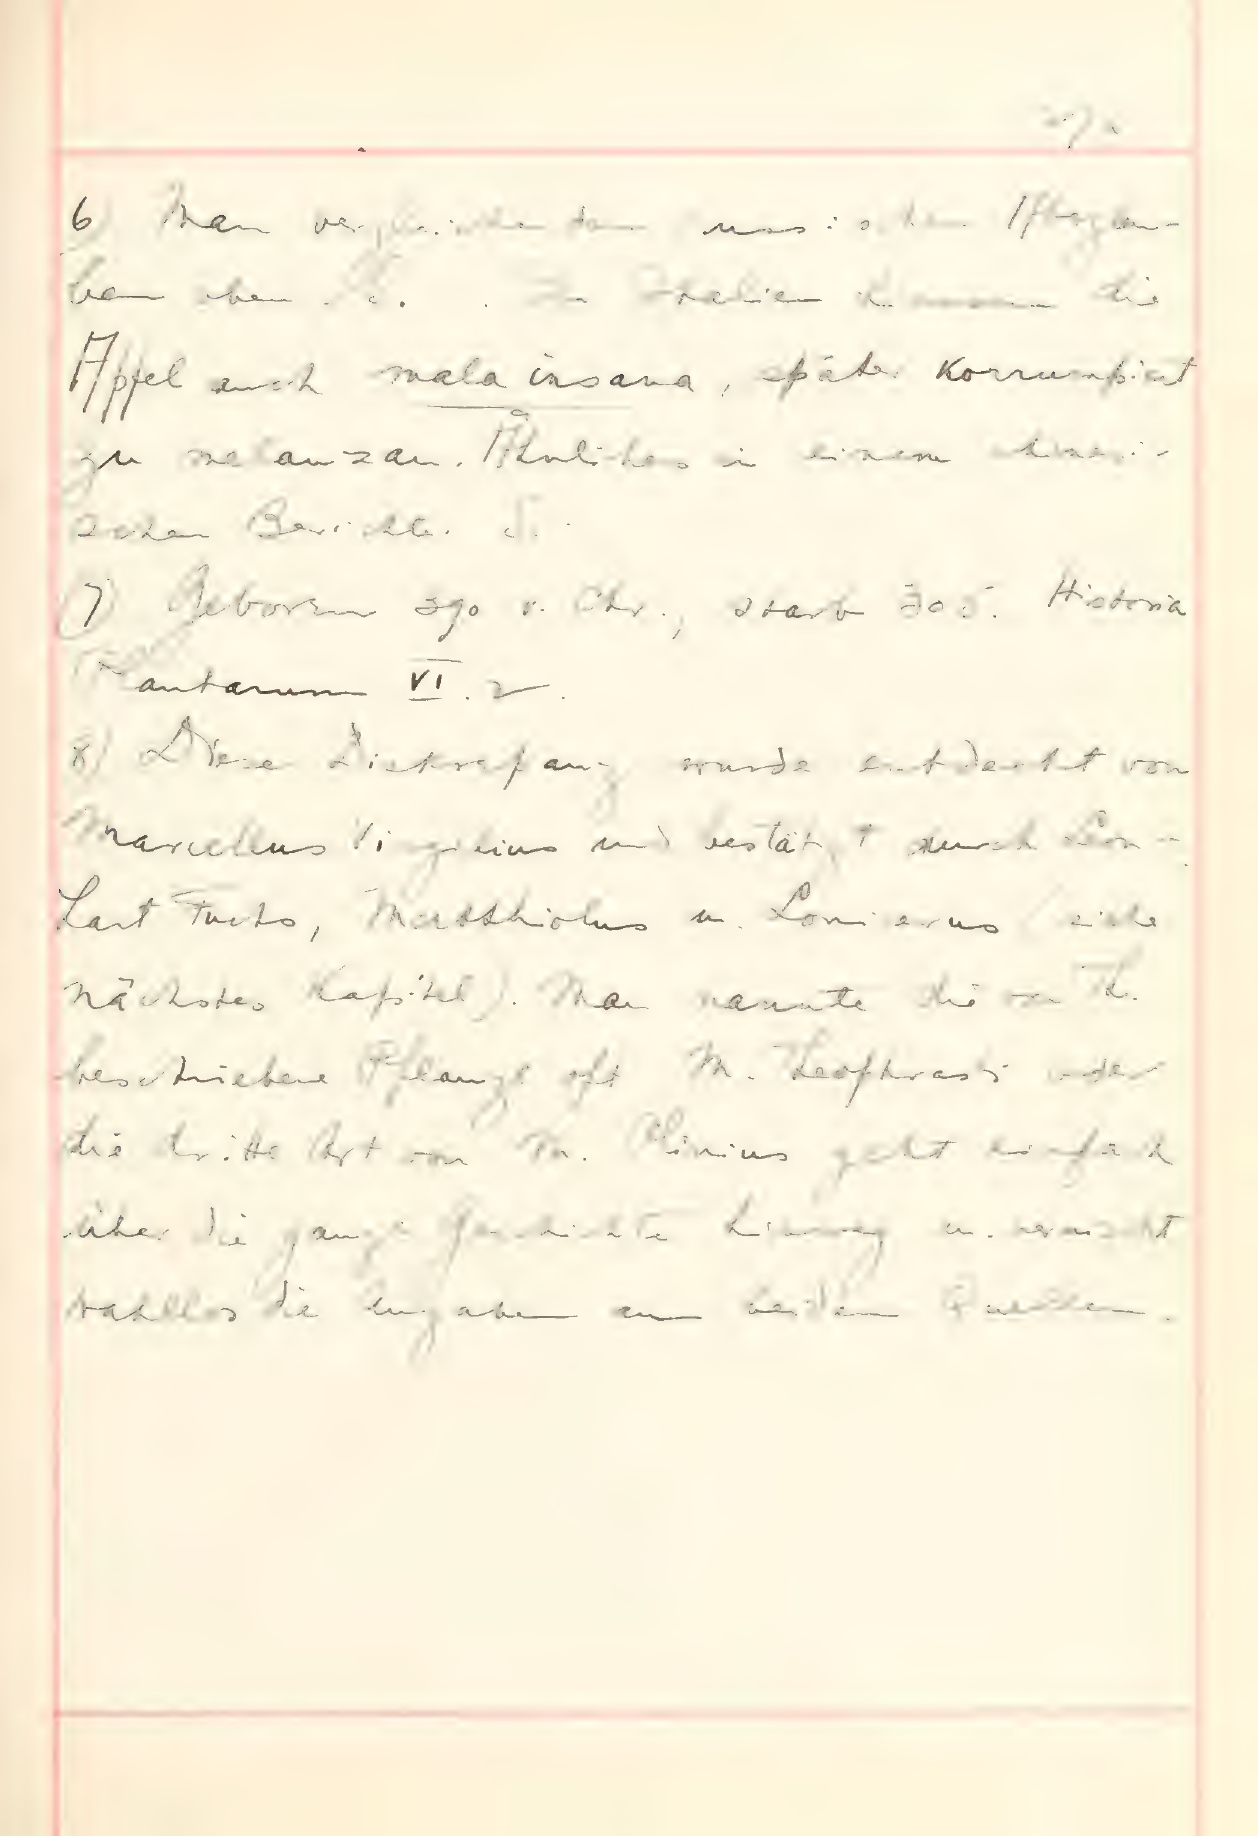 6) Man vergleiche den russischen Aberglau-
ben oben S. . In Italien die
Äpfel auch mala insana, später korrumpiert
zu melanzan. Ähnliches in einem chinesi-
schen Berichte. S.
7) Geboren 390 v. Chr., starb 305. Historia
Plantarum VI. 2.
8) Diese Diskrepanz wurde entdeckt von
Marcellus Virgilius und bestätigt durch Leon-
hart Fuchs, Matthiolus u. Lonicerus (siehe
nächstes Kapitel). Man nannte die von Th.
beschriebene Pflanze oft M. Theophrasti oder
die dritte Art von M. Plinius geht einfach
über die ganze Geschichte hinweg u. vermischt
wahllos die Angaben aus beiden Quellen.